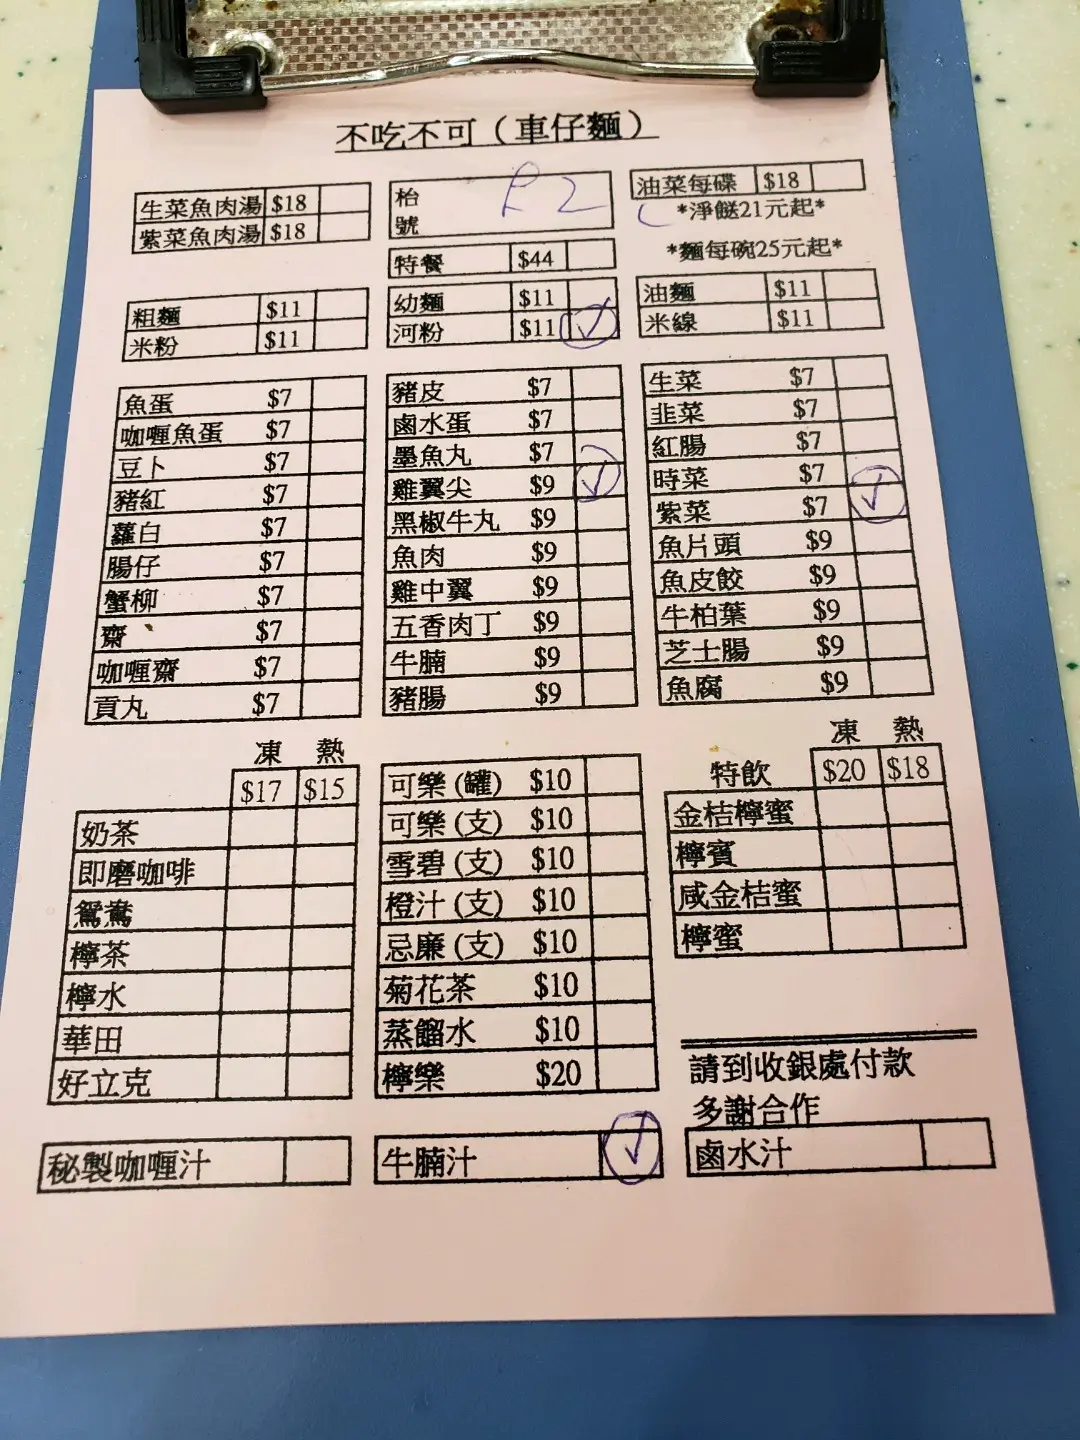 不吃不可（車仔麵）
生菜魚肉湯 $18
紫菜魚肉湯 $18
枱號 R2
油菜每碟 $18
*淨餸21元起*
*麵每碗25元起*
特餐 $44
粗麵 $11
米粉 $11
幼麵 $11
河粉 $11 ✓
油麵 $11
米線 $11
魚蛋 $7
咖喱魚蛋 $7
豆卜 $7
豬紅 $7
蘿白 $7
腸仔 $7
蟹柳 $7
齋 $7
咖喱齋 $7
貢丸 $7
豬皮 $7
鹵水蛋 $7
墨魚丸 $7
雞翼尖 $9 ✓
黑椒牛丸 $9
魚肉 $9
雞中翼 $9
五香肉丁 $9
牛腩 $9
豬腸 $9
生菜 $7
韭菜 $7
紅腸 $7
時菜 $7
紫菜 $7 ✓
魚片頭 $9
魚皮餃 $9
牛柏葉 $9
芝士腸 $9
魚腐 $9
凍 熱
$17 $15
奶茶
即磨咖啡
鴛鴦
檸茶
檸水
華田
好立克
可樂 (罐) $10
可樂 (支) $10
雪碧 (支) $10
橙汁 (支) $10
忌廉 (支) $10
菊花茶 $10
蒸餾水 $10
檸樂 $20
凍 熱
特飲 $20 $18
金桔檸蜜
檸賓
咸金桔蜜
檸蜜
請到收銀處付款
多謝合作
秘製咖喱汁
牛腩汁 ✓
鹵水汁